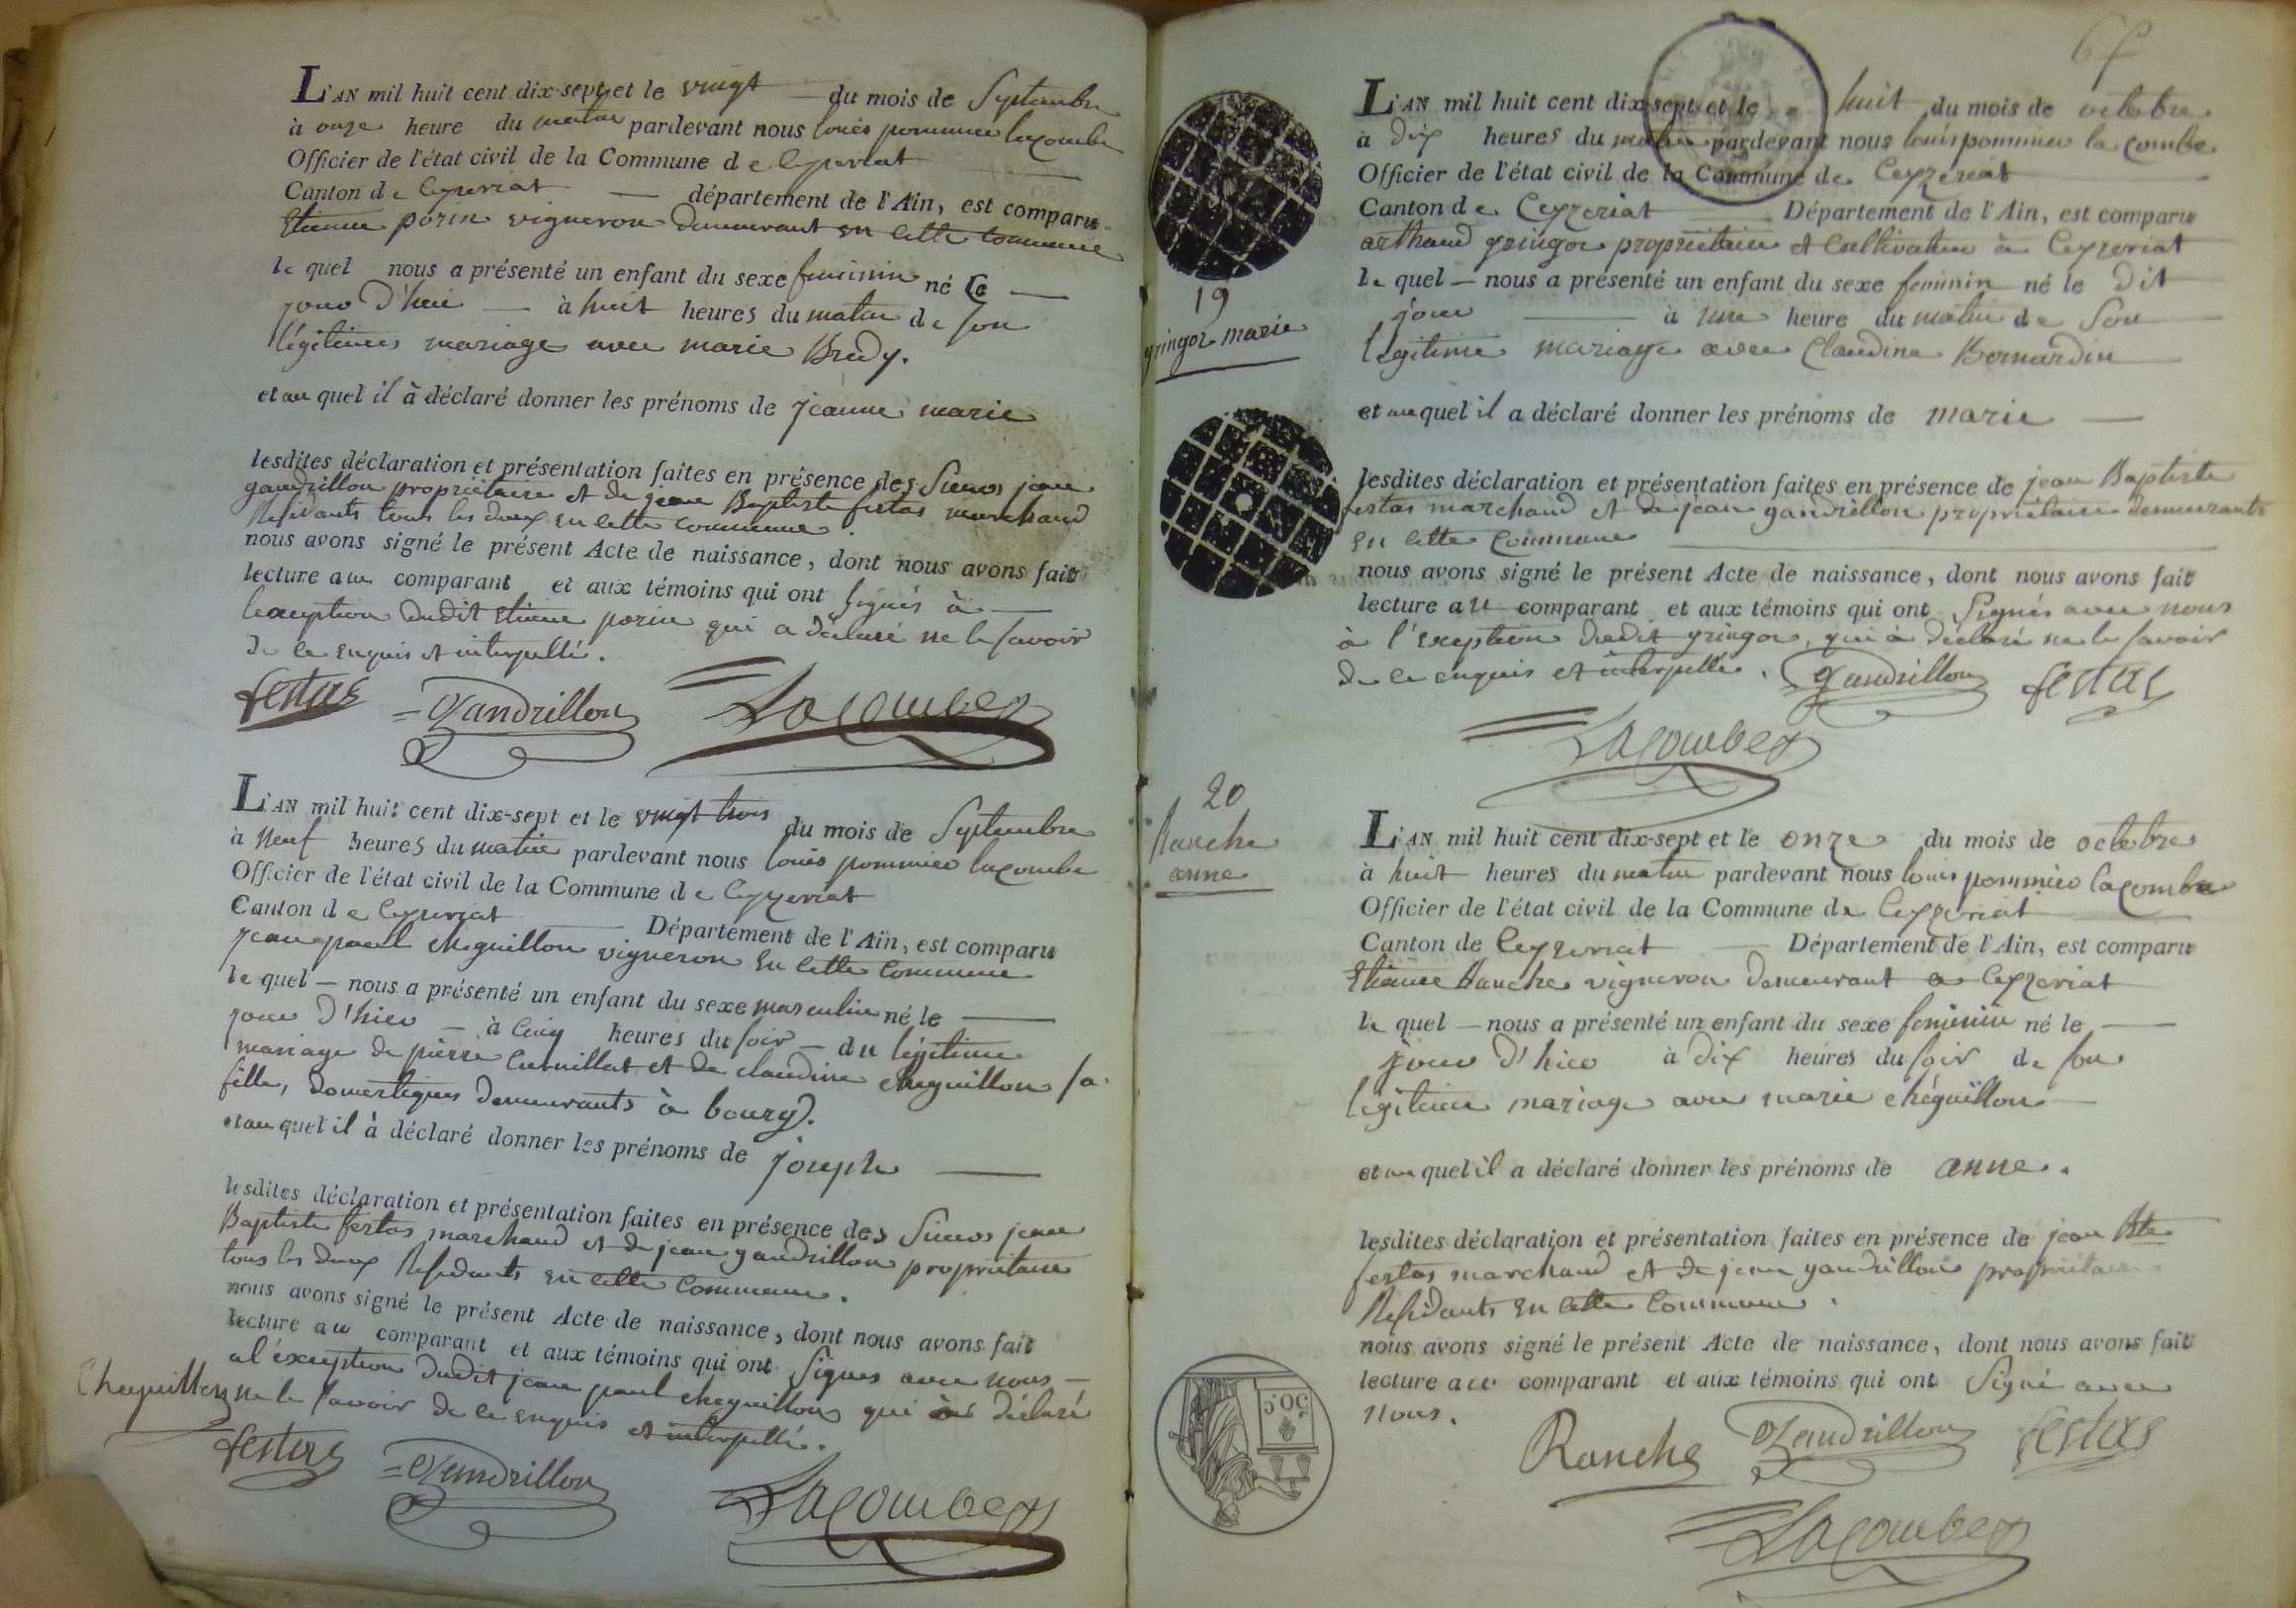 L'AN mil huit cent dix-sept et le vingt du mois de Septembre
à onze heure du matin pardevant nous louis pommier lacombe
Officier de l'état civil de la Commune de Ceyzeriat
Canton de Ceyzeriat département de l'Ain, est comparu
Etienne porin vigneron demeurant en cette commune
le quel nous a présenté un enfant du sexe feminin né Ce
jour d'hui à huit heures du matin de son
légitime mariage avec marie Bredy.
et au quel il à déclaré donner les prénoms de jeanne marie
lesdites déclaration et présentation faites en présence des Sieurs jean
gandrillon propriétaire et de jean Baptiste festas marchand
Residants tous les deux en cette commune.
nous avons signé le présent Acte de naissance, dont nous avons fait
lecture au comparant et aux témoins qui ont signés à
lexception dudit Etienne porin qui a déclaré ne le savoir
de ce enquis et interpellé.
festas Gandrillon Lacombe
L'AN mil huit cent dix-sept et le vingt trois du mois de Septembre
à neuf heures du matin pardevant nous louis pommier lacombe
Officier de l'état civil de la Commune de Ceyzeriat
Canton de Ceyzeriat Département de l'Ain, est comparu
jean paul cheguillon vigneron en cette commune
le quel nous a présenté un enfant du sexe masculin né le
jour d'hier à cinq heures du soir du légitime
mariage de pierre Curnillat et de claudine cheguillon sa
fille, domestiques demeurants à bourg.
et au quel il à déclaré donner les prénoms de joseph
lesdites déclaration et présentation faites en présence des Sieurs jean
Baptiste festas marchand et de jean gandrillon propriétaire
tous les deux Residants en cette commune.
nous avons signé le présent Acte de naissance, dont nous avons fait
lecture au comparant et aux témoins qui ont Signés avec nous
al'éxception dudit jean paul cheguillon qui à déclaré
Cheguillon ne le savoir de ce enquis et interpellé.
festas Gandrillon Lacombe
L'AN mil huit cent dix-sept et le huit du mois de octobre
à dix heures du matin pardevant nous louis pommier la combe
Officier de l'état civil de la Commune de Ceyzeriat
Canton de Ceyzeriat Département de l'Ain, est comparu
arthaud gringoz propriétaire et cultivateur à Ceyzeriat
le quel nous a présenté un enfant du sexe feminin né le dit
jour à une heure du matin de Son
légitime mariage avec Claudine Bernardin
et au quel il a déclaré donner les prénoms de marie
lesdites déclaration et présentation faites en présence de jean Baptiste
festas marchand et de jean gandrillon propriétaire demeurants
en cette commune
nous avons signé le présent Acte de naissance, dont nous avons fait
lecture au comparant et aux témoins qui ont Signés avec nous
à l'exception dudit gringoz, qui à déclaré ne le savoir
de ce enquis et interpellé. Gandrillon festas
Lacombe
19
gringoz marie
20
Ranche
anne
L'AN mil huit cent dix-sept et le onze du mois de octobre
à huit heures du matin pardevant nous louis pommier lacombe
Officier de l'état civil de la Commune de Ceyzeriat
Canton de Ceyzeriat Département de l'Ain, est comparu
Etienne Ranche vigneron demeurant a Ceyzeriat
le quel nous a présenté un enfant du sexe feminin né le
jour d'hier à dix heures du soir de son
légitime mariage avec marie chéguillon
et au quel il a déclaré donner les prénoms de anne.
lesdites déclaration et présentation faites en présence de jean Bte
festas marchand et de jean gandrillon propriétaire
Residants en cette commune.
nous avons signé le présent Acte de naissance, dont nous avons fait
lecture au comparant et aux témoins qui ont Signé avec
nous.
Ranche Gandrillon festas
Lacombe
50C